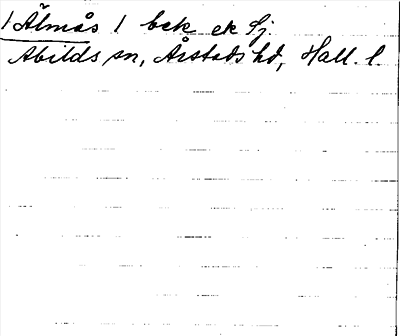 / Älmås / bek ek Sj.
Abilds sn, Årstads hd, Hall. l.